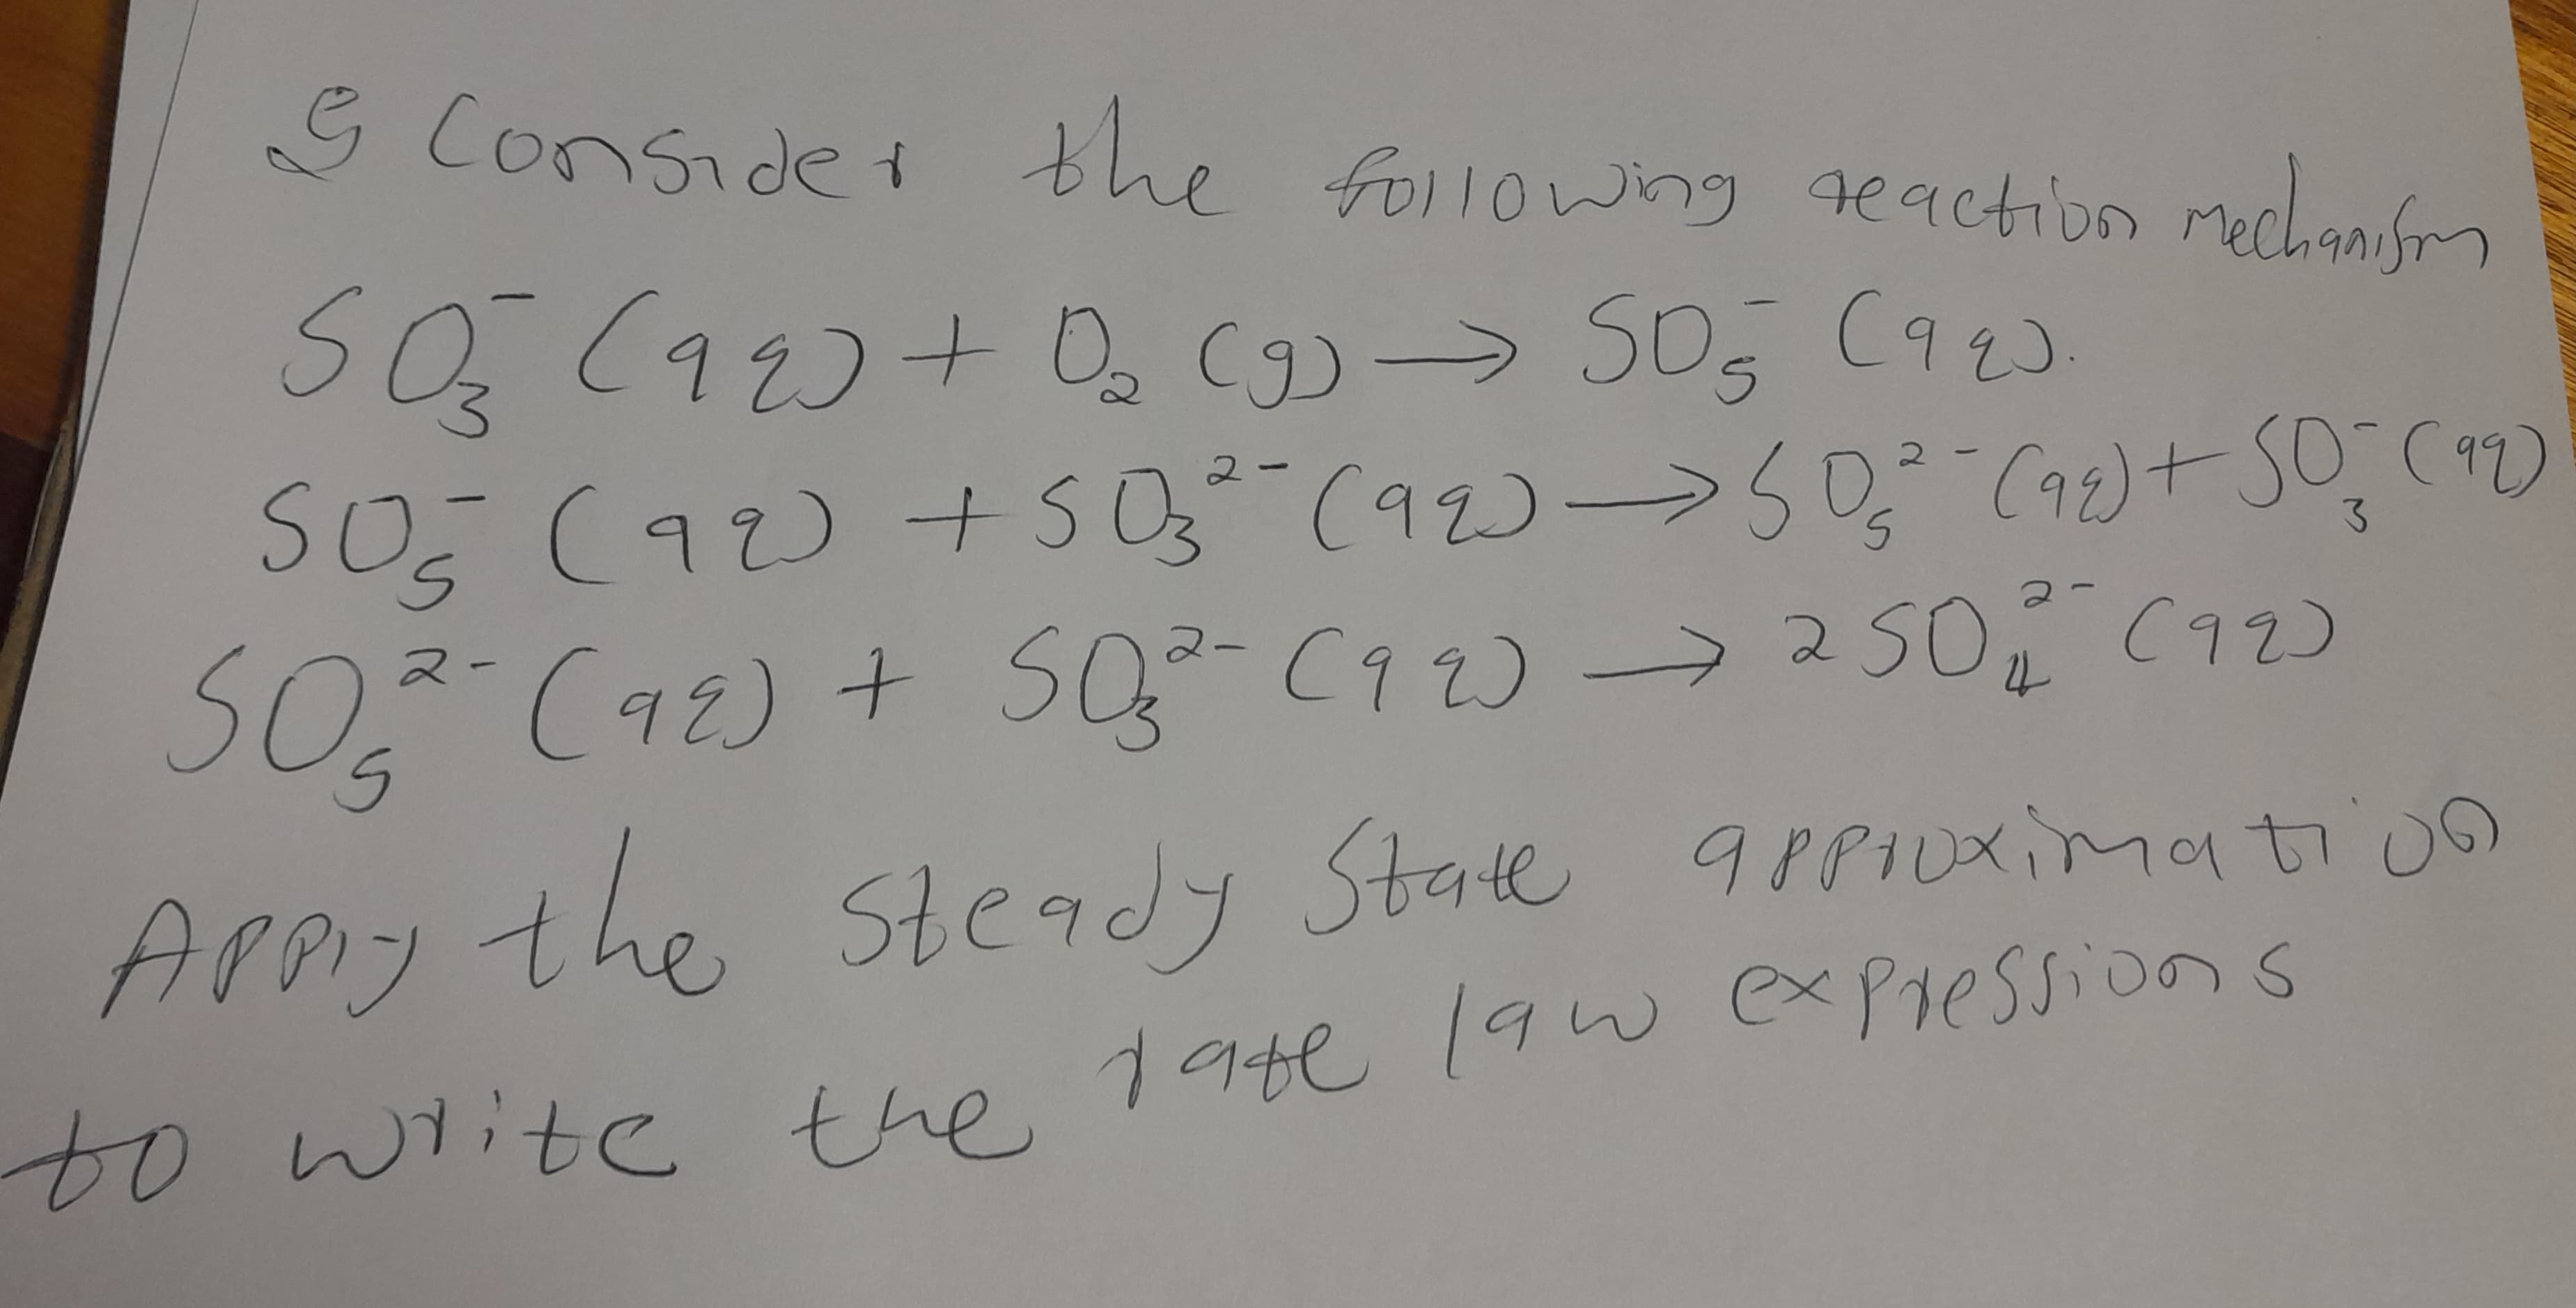 Consider the following reaction mechanism
SO₃⁻ (aq) + O₂ (g) → SO₅⁻ (aq).
SO₅⁻ (aq) + SO₃²⁻ (aq) → SO₅²⁻ (aq) + SO₃⁻ (aq)
SO₅²⁻ (aq) + SO₃²⁻ (aq) → 2SO₄²⁻ (aq)
Apply the steady state approximation
to write the rate law expressions